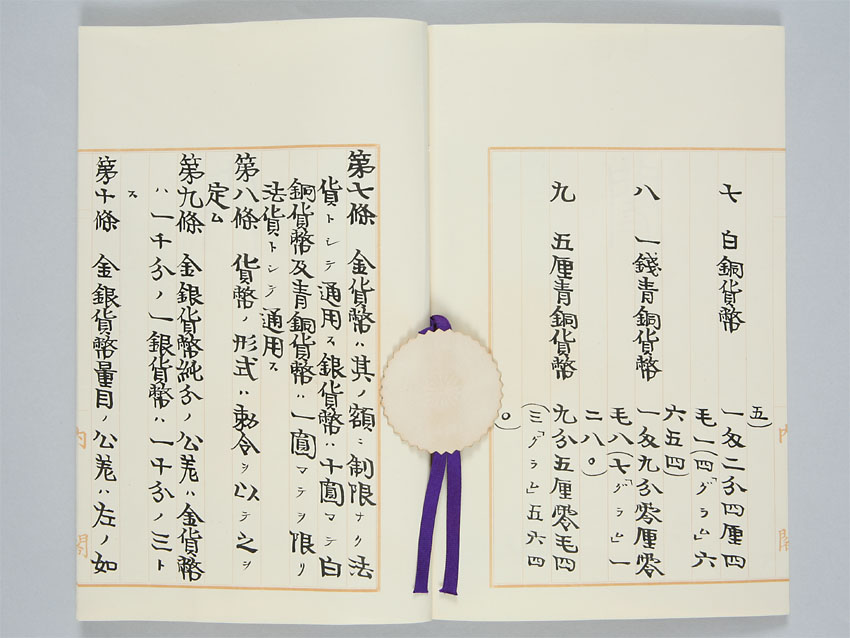 五)
七 白銅貨幣 一匁二分四厘四
毛一(四「グラム」六
六五四)
八 一錢青銅貨幣 一匁九分零厘零
毛八(七「グラム」一
二八〇)
九 五厘青銅貨幣 九分五厘零毛四
(三「グラム」五六四
〇)
内閣
第七條 金貨幣ハ其ノ額ニ制限ナク法
貨トシテ通用ス銀貨幣ハ十圓マテ白
銅貨幣及青銅貨幣ハ一圓マテヲ限リ
法貨トシテ通用ス
第八條 貨幣ノ形式ハ勅令ヲ以テ之ヲ
定ム
第九條 金銀貨幣純分ノ公差ハ金貨幣
ハ一千分ノ一銀貨幣ハ一千分ノ三ト
ス
第十條 金銀貨幣量目ノ公差ハ左ノ如
内閣